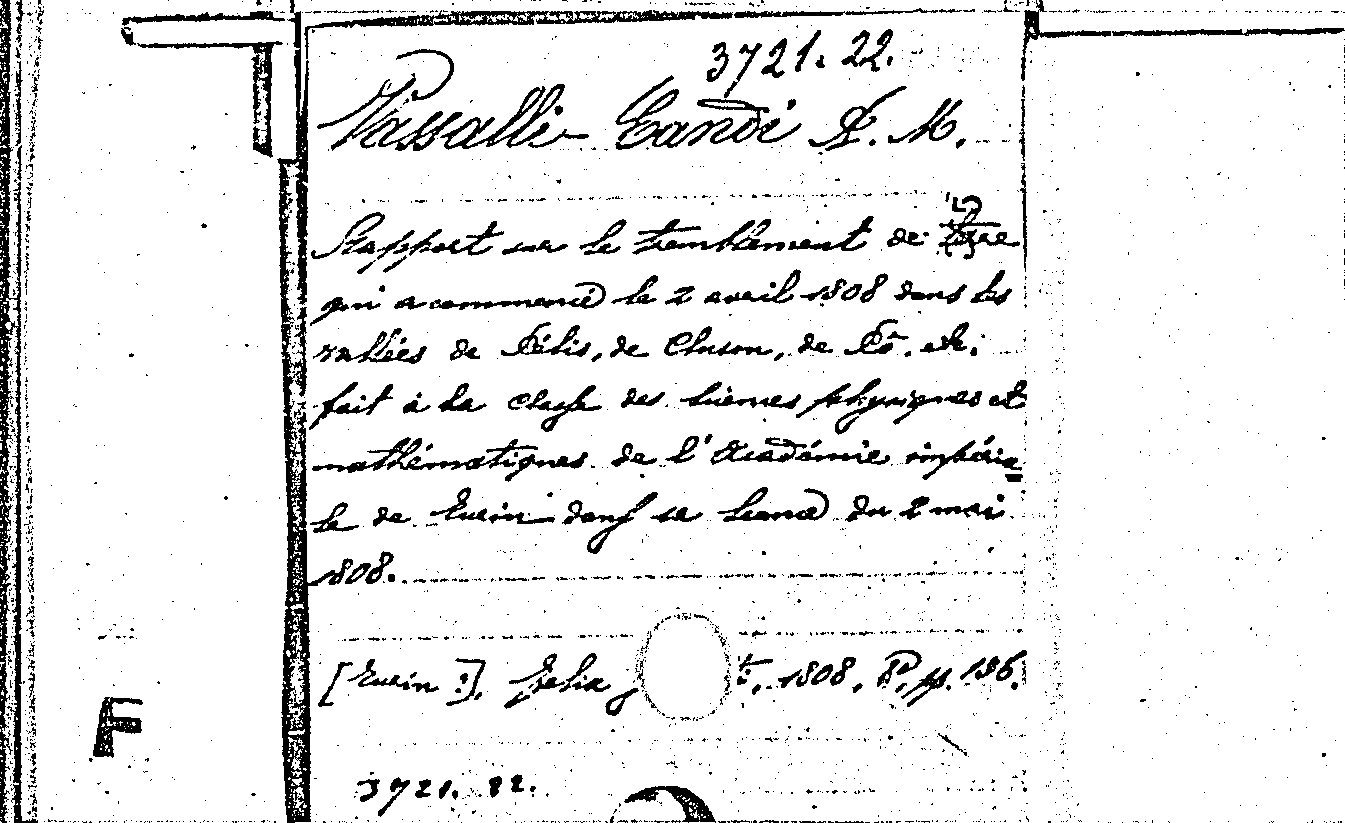 3721. 22.
Vassalli-Eandi A. M.
Rapport sur le tremblement de terre
qui a commencé le 2 avril 1808 dans les
vallées de Pélis, de Cluson, de Pô, etc;
fait à la classe des sciences physiques et
mathématiques de l'Académie impéria
le de Turin dans sa séance du 2 mai
1808.
[Turin :], Felix 1808, 8°, pp. 136.
3721. 22.
F